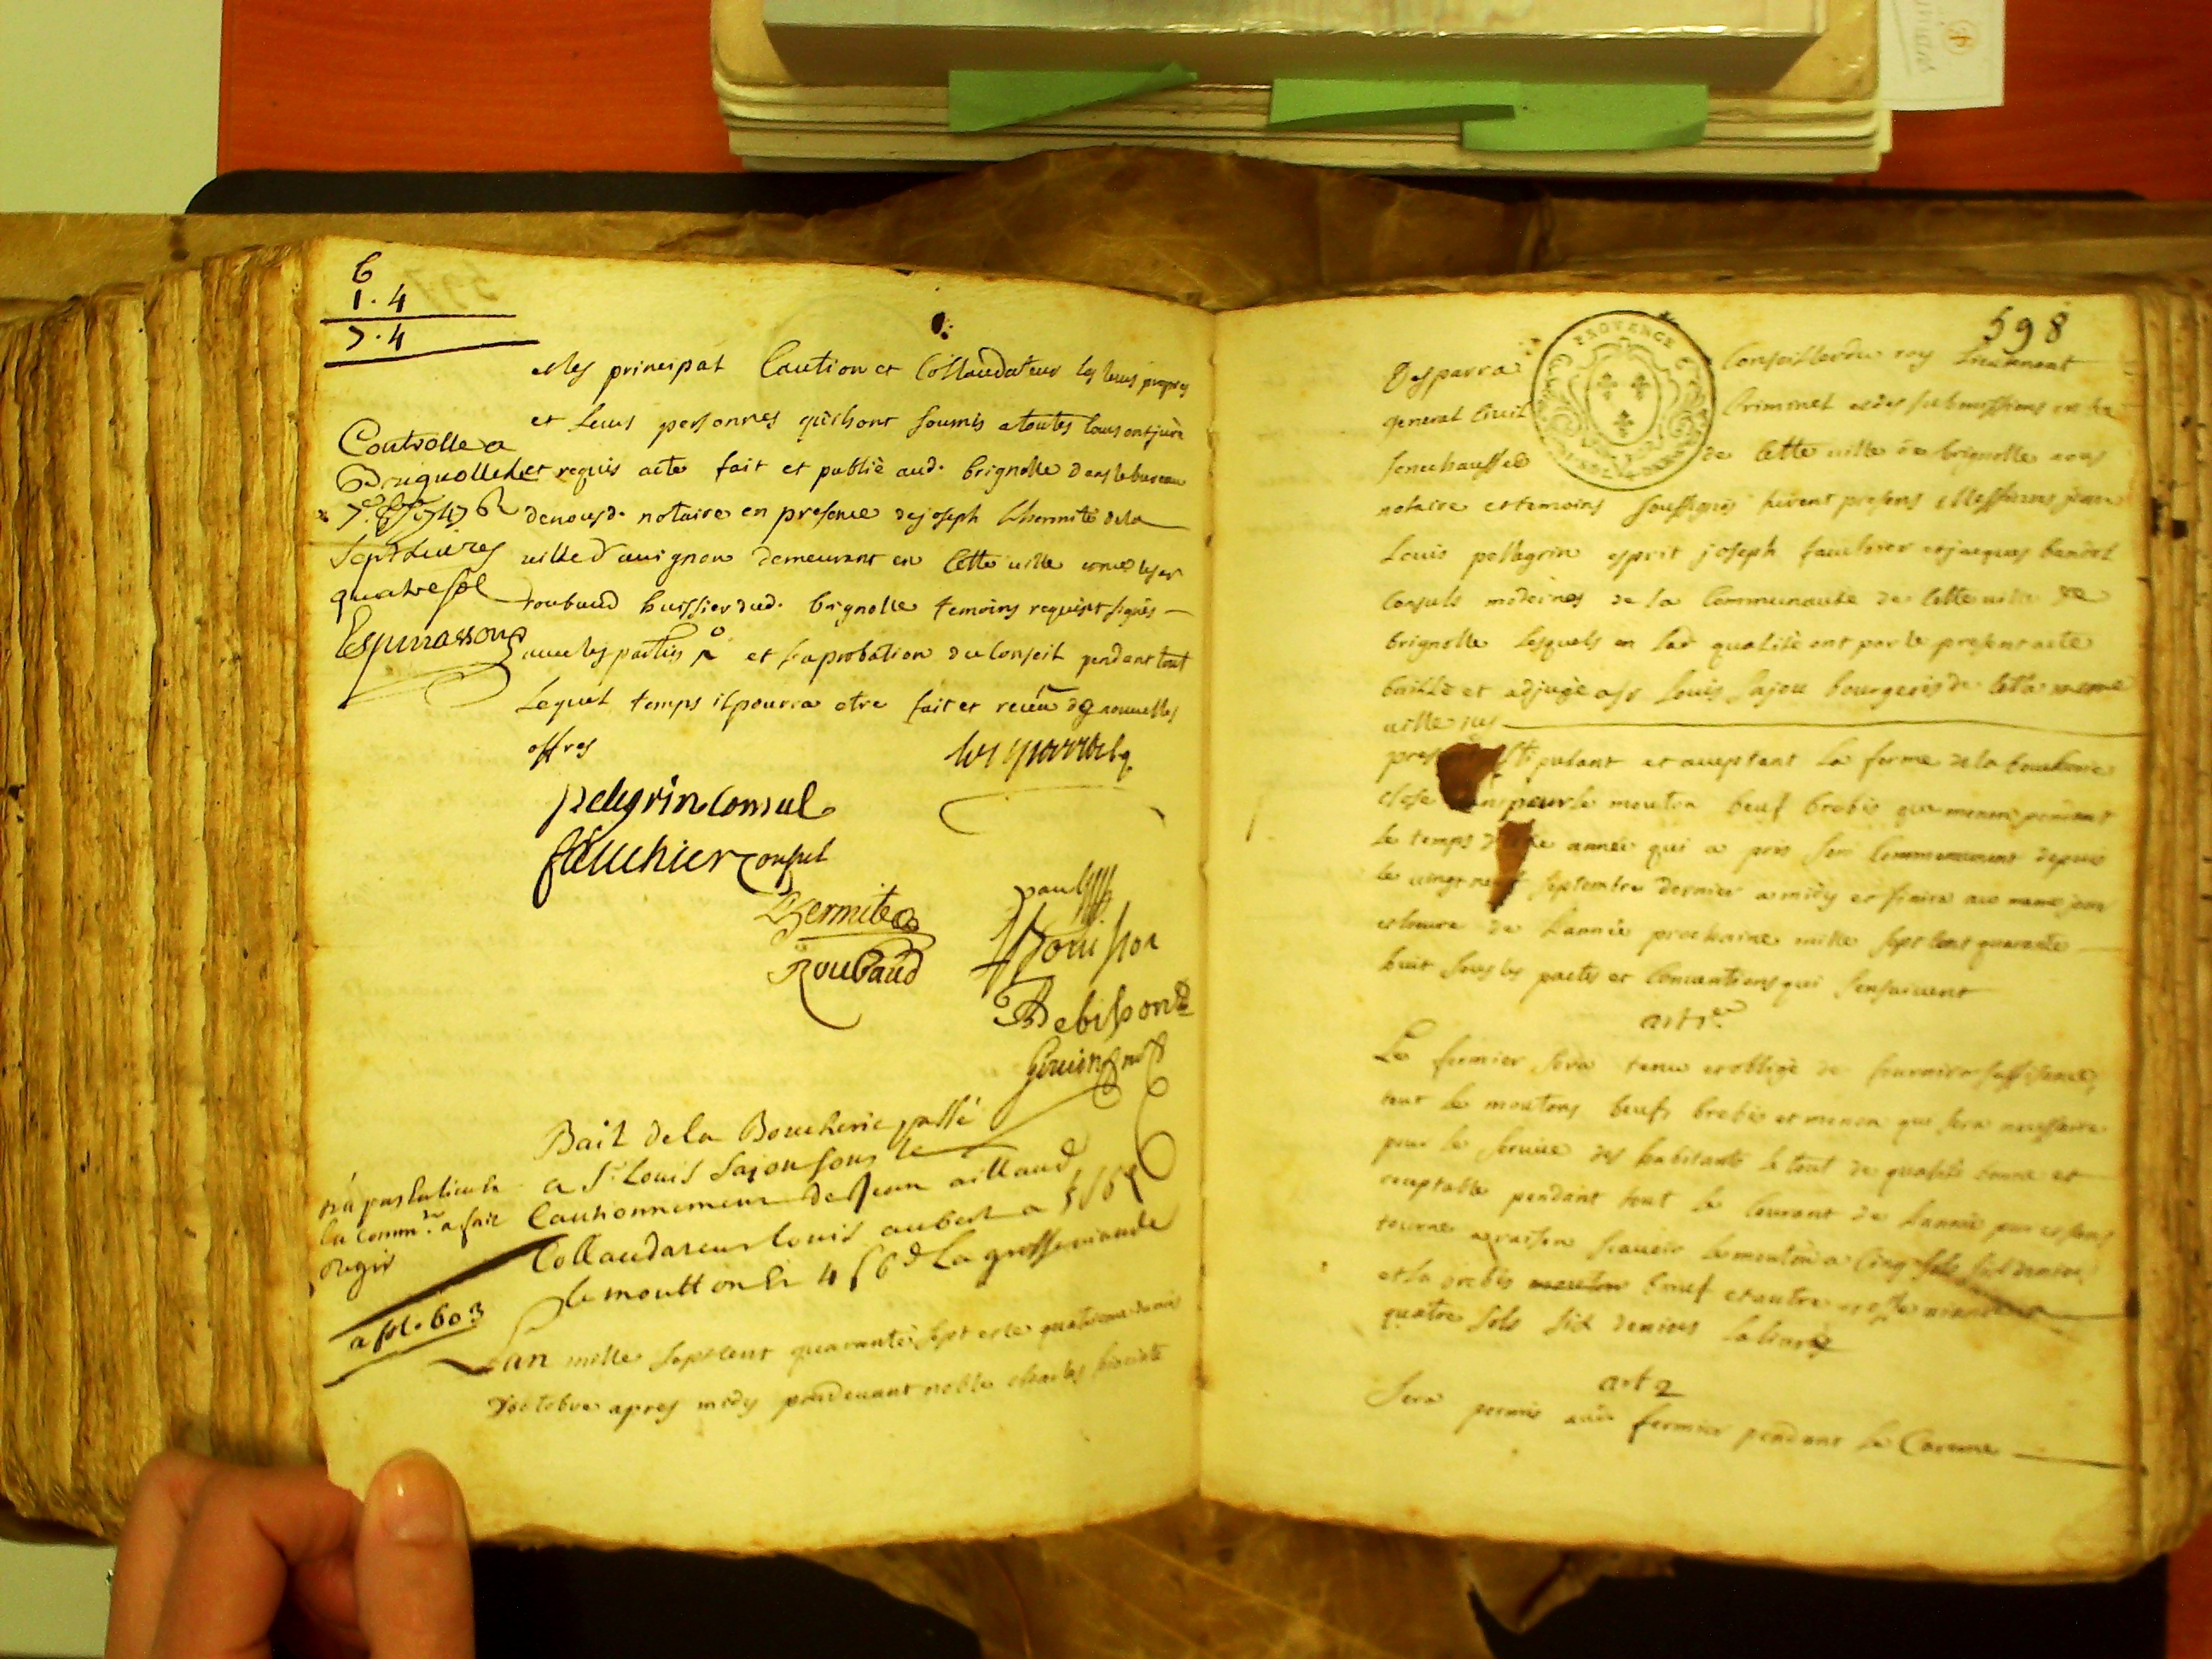 6
1.4
7.4
et les principal Caution et Collaudateur les leurs propres
et leurs personnes qu'ils ont soumis a toutes Cours ont juré
et requis acte fait et publié aud. brignolle dans le bureau
de nousd. notaire en presence de joseph Lhermite de la
ville d'avignon demeurant en cette ville
roubaud huissier dud. brignolle temoins requis et signés
avec les parties et l'aprobation du Conseil pendant tout
Lequel temps il pourra etre fait et receu de nouvelles
offres
Controlle a
Brignolle le
7.e 8bre 1747 R
Sept Livres
quatre sol
Espinassoux
pelegrin Consul
fauchier Consul
Lhermite
Roubaud
paul
Bouisson
Debisson
Bail de la Boucherie passé
a Sr. Louis Lajou sous le
Cautionnement de Jean aillaud
Collaudateur Louis aubert a 5 s 6 d
le moutton Et 4 s 6 d La grosse viande
n'a pas eu lieu
la comm.té a fait
regir
a fol. 603
L'an mille sept cent quarante sept et le quatrieme du mois
d'octobre apres midy pardevant noble charles
598
PROVENCE
Desparra Conseiller du roy Lieutenant
general Civil Criminel et des submissions en la
senechaussée de cette ville de brignolle nous
notaire et temoins soussignés furent presens Messieurs jean
Louis pellegrin esprit joseph fauchier et jacques
Consuls modernes de la Communauté de cette ville de
brignolle Lesquels en lad. qualité ont par le present acte
baillé et adjugé a sr. Louis Lajou bourgeois de cette meme
ville
stipulant et acceptant La ferme de la boucherie
close pour le mouton beuf brebis et menon pendant
le temps d'une année qui a pris son Commencement depuis
le vingt neuf septembre dernier a midy et finira au meme jour
et heure de L'année prochaine mille sept cent quarante
huit sous les pactes et Conventions qui s'ensuivent
art 1.er
Le fermier sera tenu et obligé de fournir
tout le moutons beufs brebis et menon qui sera necessaire
pour le service des habitants le tout de qualité bonne et
receptable pendant tout le Courant de L'année
a raison scavoir le mouton a Cinq sols six deniers
et la brebis mouton beuf et autre grosse viande a
quatre sols six deniers la livre
art 2
Sera permis aud. fermier pendant le Careme